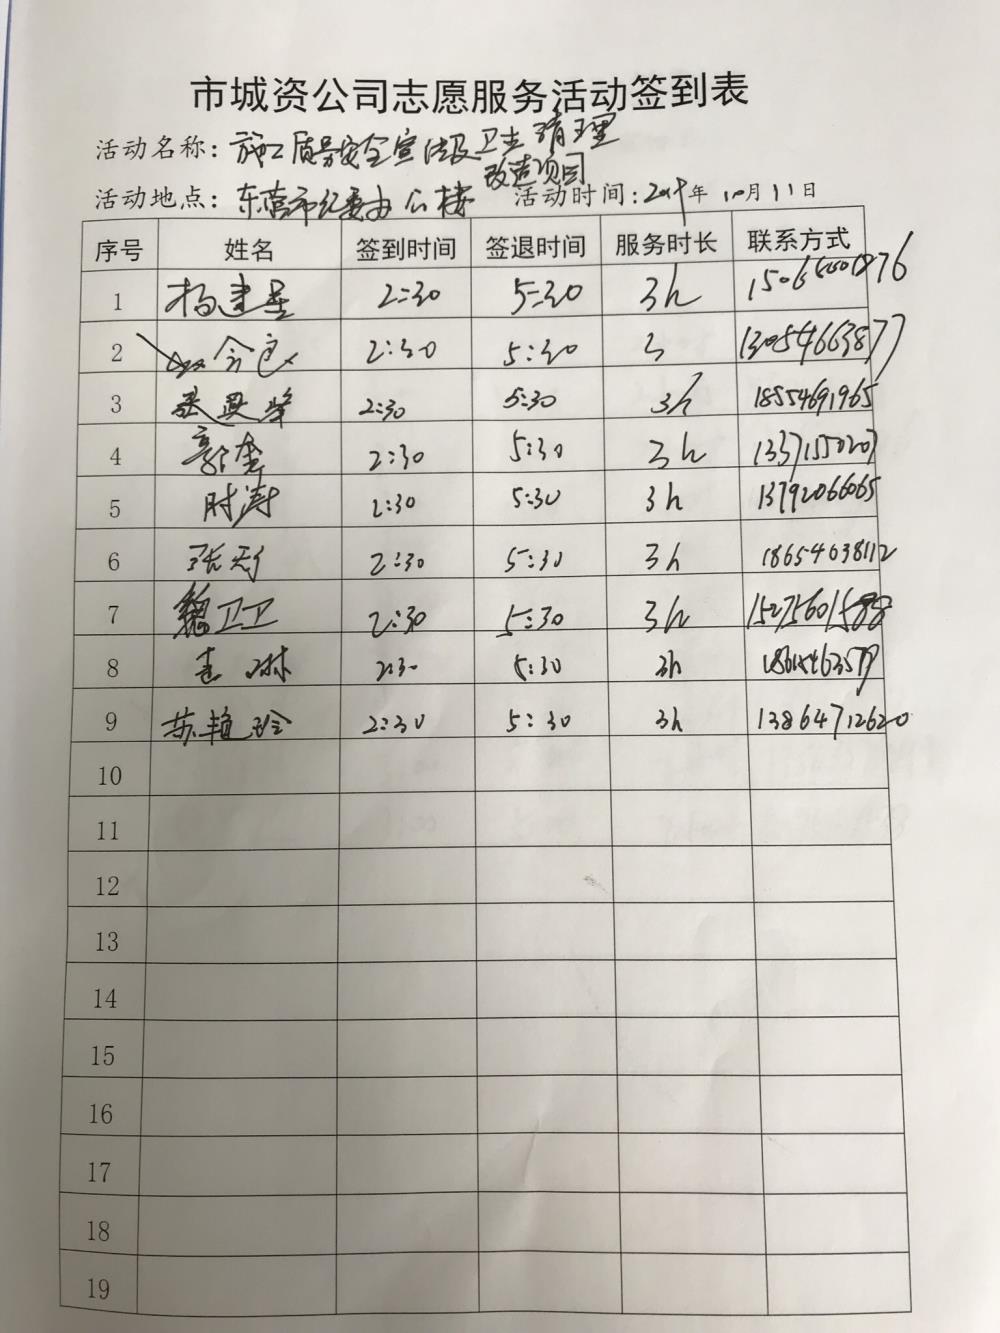 市城资公司志愿服务活动签到表
活动名称：施工质量安全宣传及卫生清理
改造项目
活动地点：东营市纪委办公楼 活动时间：2019年10月11日
序号 姓名 签到时间 签退时间 服务时长 联系方式
1 杨建 2:30 5:30 3h
2 2:30 5:30 3 13054663877
3 2:30 5:30 3h 18554691965
4 郭奎 2:30 5:30 3h 13371550207
5 时涛 2:30 5:30 3h 13792066065
6 张彤 2:30 5:30 3h 18654638112
7 魏卫卫 2:30 5:30 3h 15275601588
8 袁琳 2:30 5:30 3h
9 苏艳玲 2:30 5:30 3h 13864712620
10
11
12
13
14
15
16
17
18
19